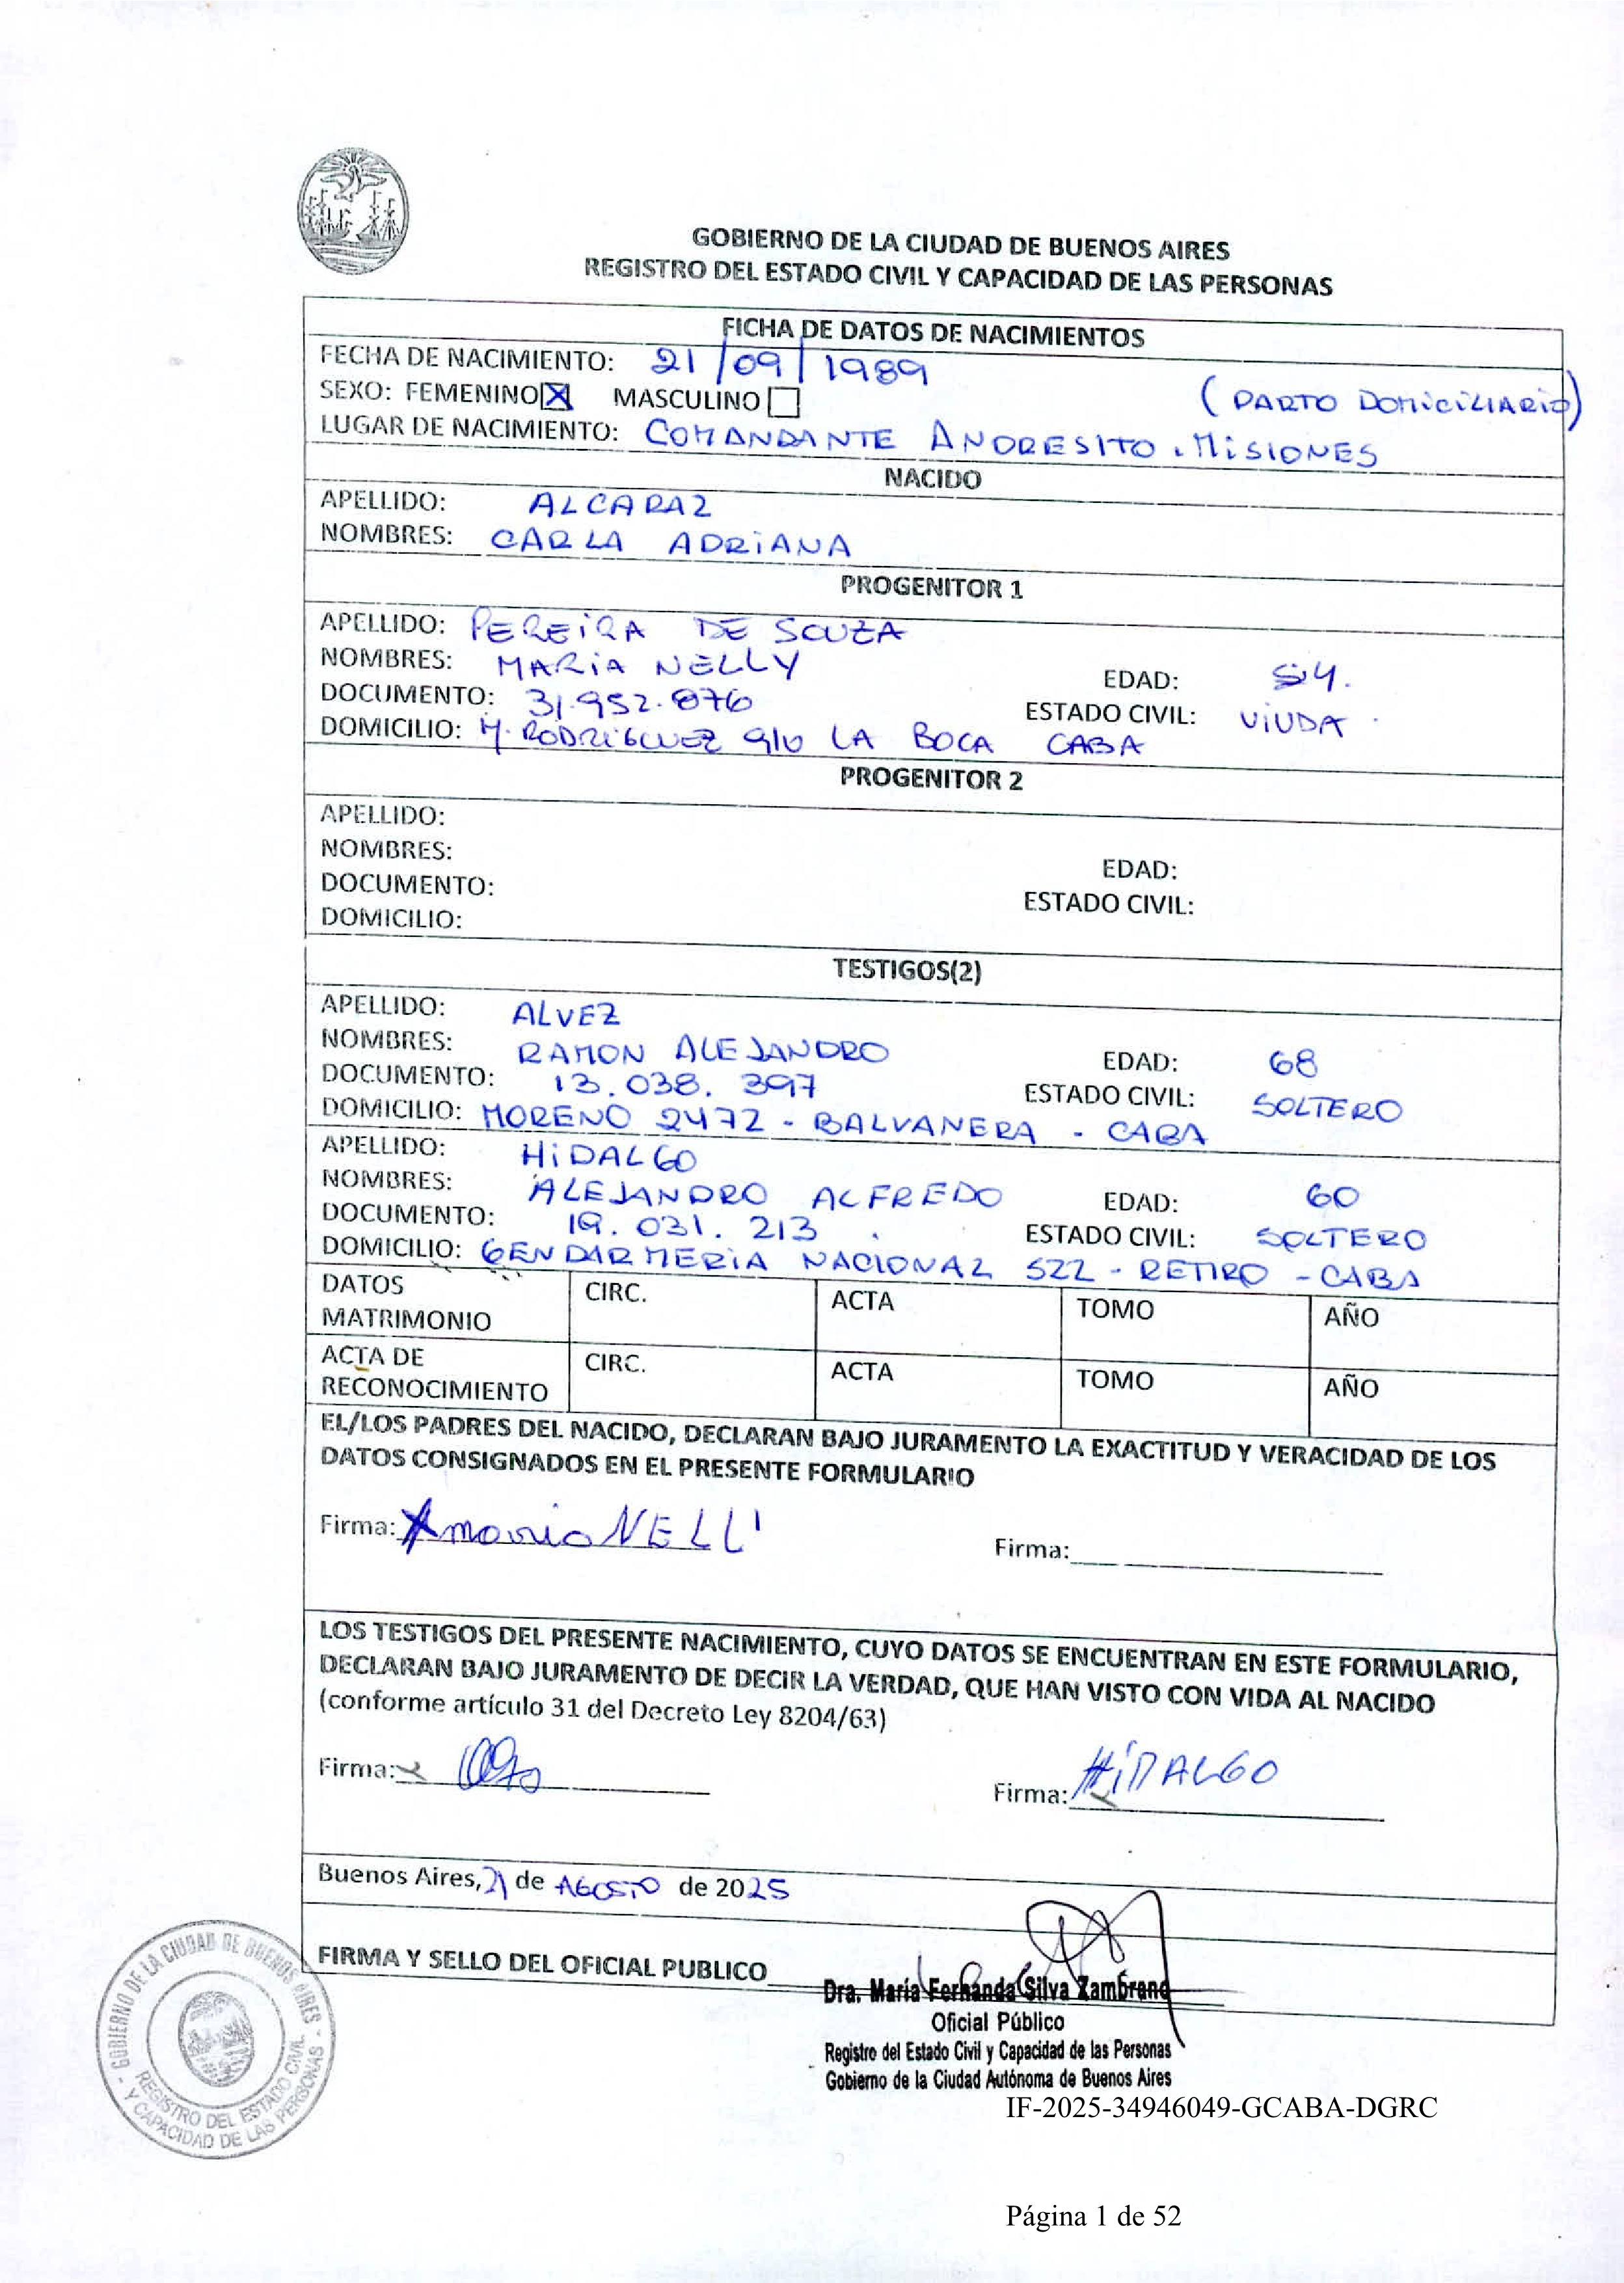 GOBIERNO DE LA CIUDAD DE BUENOS AIRES
REGISTRO DEL ESTADO CIVIL Y CAPACIDAD DE LAS PERSONAS
FICHA DE DATOS DE NACIMIENTOS
FECHA DE NACIMIENTO: 21/09/1989
SEXO: FEMENINO☒ MASCULINO☐ (PARTO DOMICILIARIO)
LUGAR DE NACIMIENTO: COMANDANTE ANDRESITO. MISIONES
NACIDO
APELLIDO: ALCARAZ
NOMBRES: CARLA ADRIANA
PROGENITOR 1
APELLIDO: PEREIRA DE SOUZA
NOMBRES: MARIA NELLY EDAD: 54.
DOCUMENTO: 31.952.876 ESTADO CIVIL: VIUDA
DOMICILIO: M. RODRIGUEZ 910 LA BOCA CABA
PROGENITOR 2
APELLIDO:
NOMBRES: EDAD:
DOCUMENTO: ESTADO CIVIL:
DOMICILIO:
TESTIGOS(2)
APELLIDO: ALVEZ
NOMBRES: RAMON ALEJANDRO EDAD: 68
DOCUMENTO: 13.038.397 ESTADO CIVIL: SOLTERO
DOMICILIO: MORENO 2472 - BALVANERA - CABA
APELLIDO: HIDALGO
NOMBRES: ALEJANDRO ALFREDO EDAD: 60
DOCUMENTO: 19.031.213 ESTADO CIVIL: SOLTERO
DOMICILIO: GENDARMERIA NACIONAL 522 - RETIRO - CABA
DATOS MATRIMONIO CIRC. ACTA TOMO AÑO
ACTA DE RECONOCIMIENTO CIRC. ACTA TOMO AÑO
EL/LOS PADRES DEL NACIDO, DECLARAN BAJO JURAMENTO LA EXACTITUD Y VERACIDAD DE LOS
DATOS CONSIGNADOS EN EL PRESENTE FORMULARIO
Firma: NELLI Firma:
LOS TESTIGOS DEL PRESENTE NACIMIENTO, CUYO DATOS SE ENCUENTRAN EN ESTE FORMULARIO,
DECLARAN BAJO JURAMENTO DE DECIR LA VERDAD, QUE HAN VISTO CON VIDA AL NACIDO
(conforme artículo 31 del Decreto Ley 8204/63)
Firma: Firma: HIDALGO
Buenos Aires, 21 de AGOSTO de 2025
FIRMA Y SELLO DEL OFICIAL PUBLICO
Dra. María Fernanda Silva Zambrano
Oficial Público
Registro del Estado Civil y Capacidad de las Personas
Gobierno de la Ciudad Autónoma de Buenos Aires
GOBIERNO DE LA CIUDAD DE BUENOS AIRES
REGISTRO DEL ESTADO CIVIL
Y CAPACIDAD DE LAS PERSONAS
IF-2025-34946049-GCABA-DGRC
Página 1 de 52